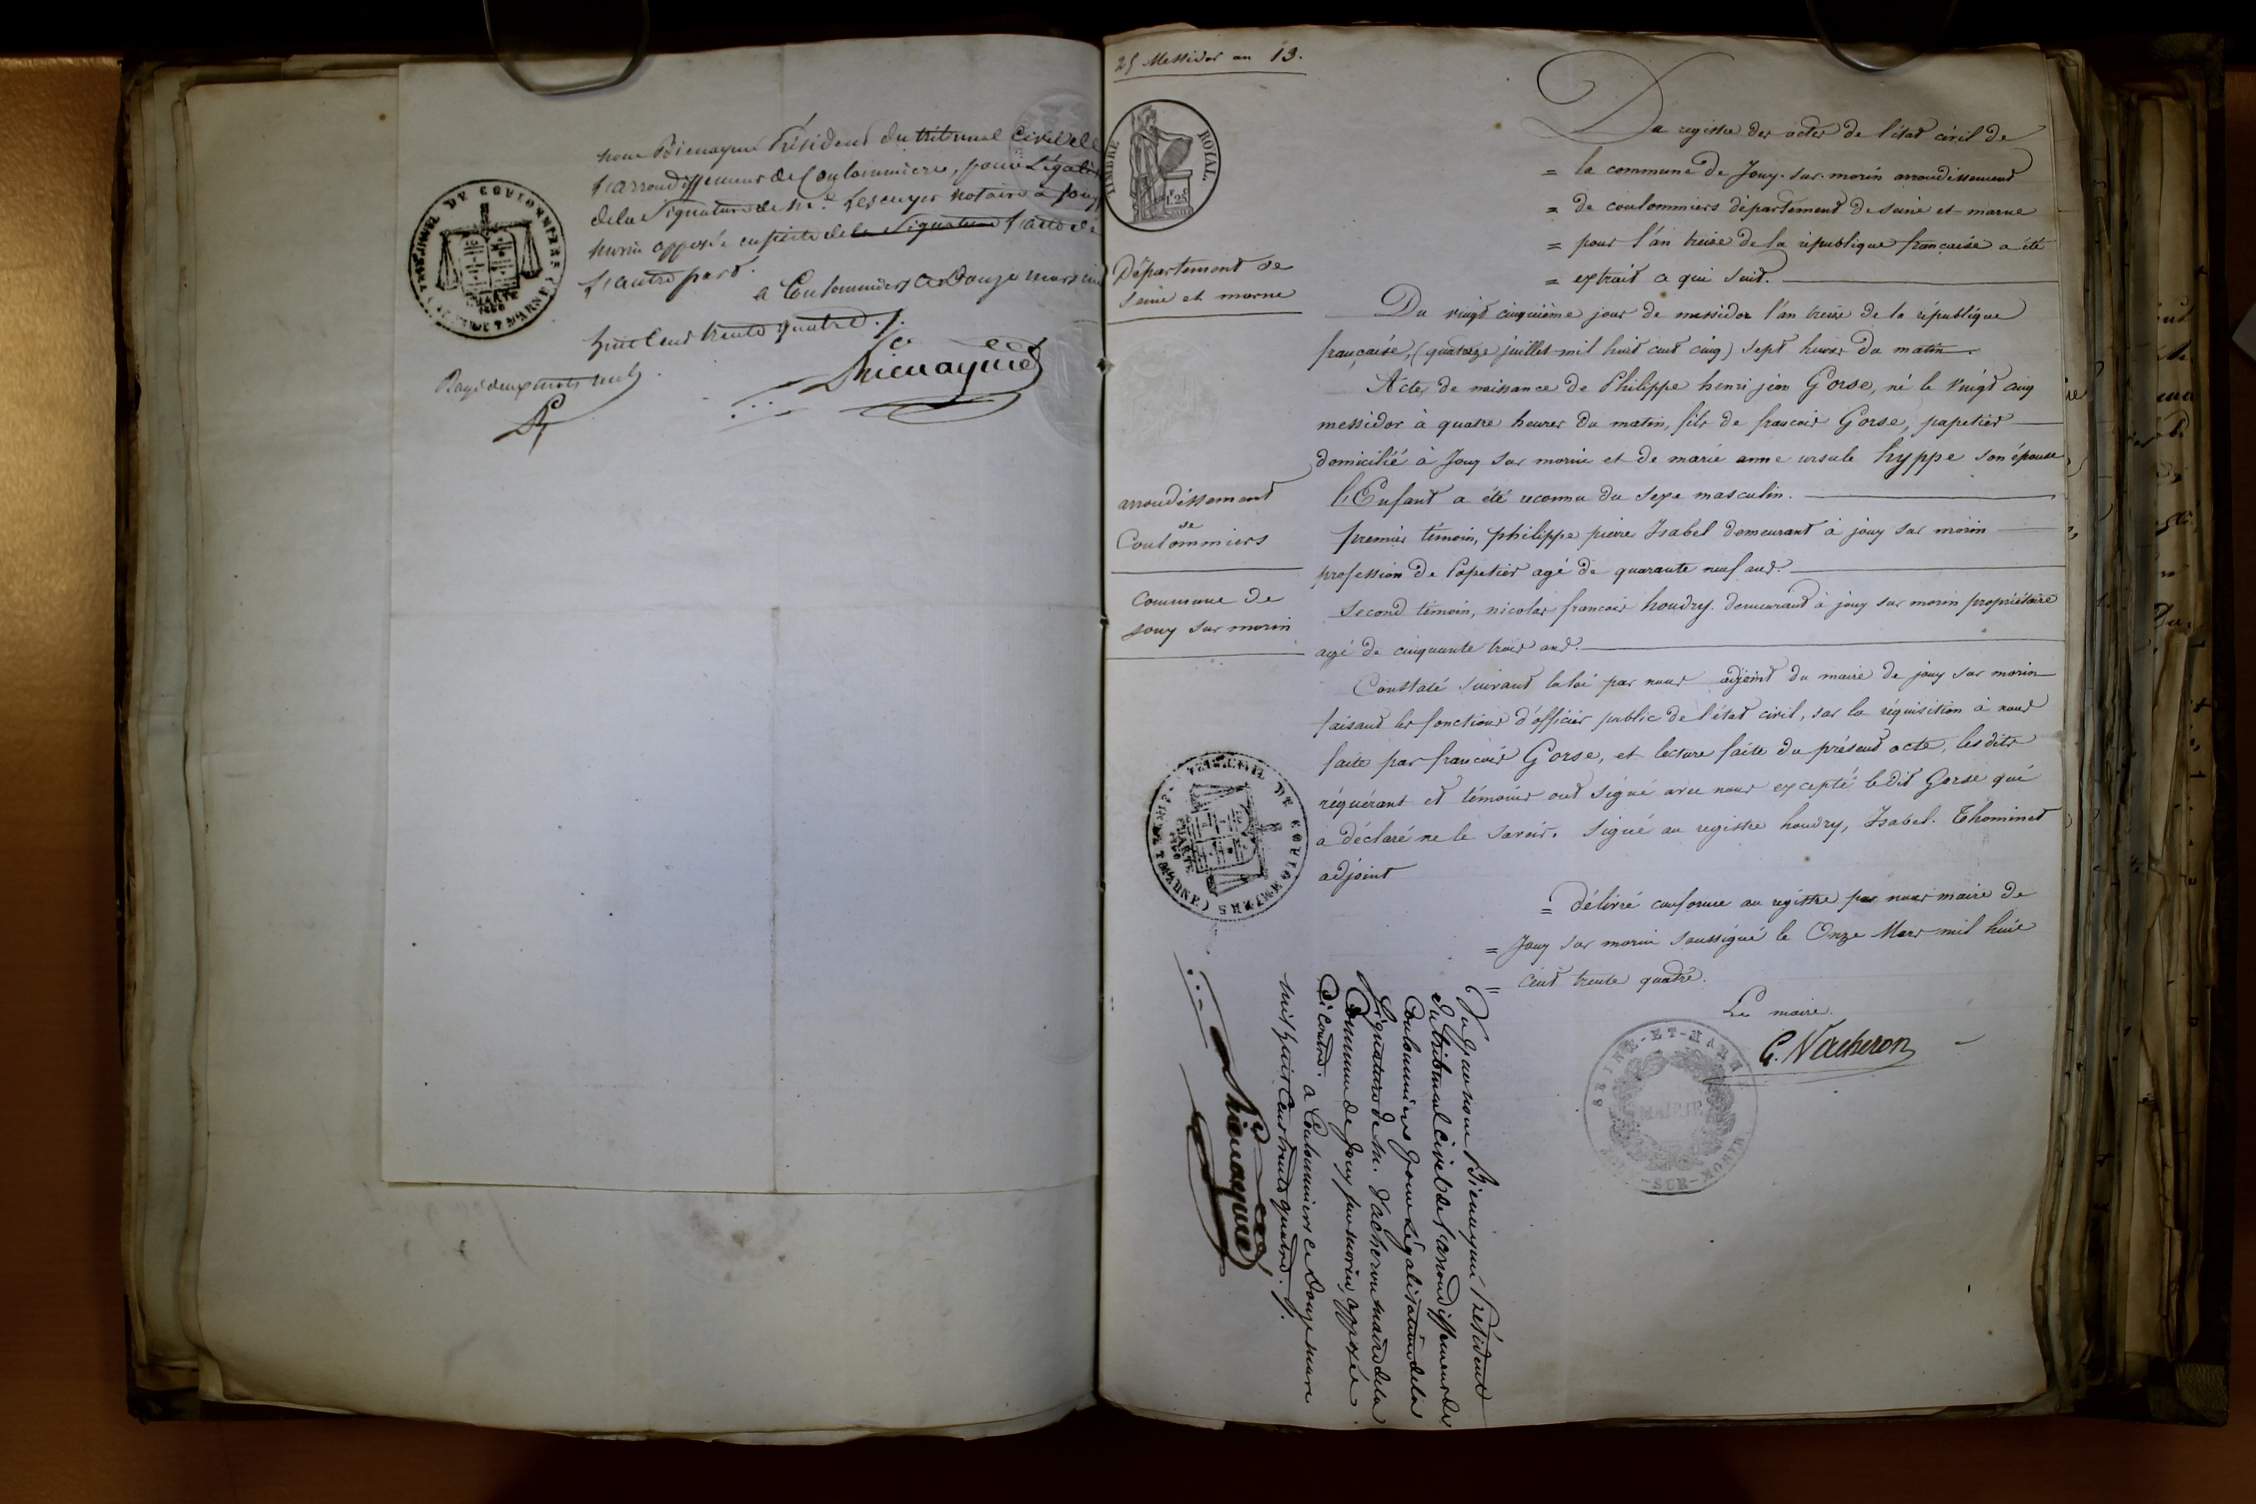 nous Bienaymé Président du tribunal Civil de
l'arrondissement de Coulommiers, pour Légalis
de la Signature de Me. Lescuyer notaire à Jouy
morin apposée en suite de la Signature l'acte de
l'autre part.
à Coulommiers ce Douze mars mil
huit Cent trente quatre ./.
Bienaymé
Rayé deux mots nuls
TRIBUNAL DE COULOMMIERS
(SEINE & MARNE)
CHARTE
1830
25 Messidor an 13.
TIMBRE ROYAL.
1f. 25c
Département de
Seine et marne
arrondissement
de
Coulommiers
Commune de
Jouy sur morin
Du registre des actes de l'état civil de
= la commune de Jouy-sur-morin arrondissement
= de coulommiers département de seine et marne
= pour l'an treize de la république française a été
= extrait ce qui suit.
Du vingt cinquième jour de messidor l'an treize de la république
française, (quatorze juillet mil huit cent cinq) sept heures du matin.
Acte de naissance de Philippe henri jean Gorse, né le vingt cinq
messidor à quatre heures du matin, fils de francois Gorse, papetier
domicilié à Jouy sur morin et de marie anne ursule hyppe son épouse
l'Enfant a été reconnu du sexe masculin.
premier témoin, philippe pierre Isabel demeurant à jouy sur morin
profession de Papetier agé de quarante neuf ans.
Second témoin, nicolas francois houdry demeurant à jouy sur morin propriétaire
agé de cinquante trois ans.
Constaté suivant la loi par nous adjoint du maire de jouy sur morin
faisant les fonctions d'officier public de l'état civil, sur la réquisition à nous
faite par francois Gorse, et lecture faite du présent acte, les dits
réquérant et témoins ont signé avec nous excepté le dit Gorse qui
a déclaré ne le savoir. Signé au registre houdry, Isabel. Thominet
adjoint
= Délivré conforme au registre par nous maire de
= Jouy sur morin soussigné le Onze Mars mil huit
= cent trente quatre.
Le maire.
G. Vacheron
SEINE-ET-MARNE
MAIRIE
JOUY-SUR-MORIN
TRIBUNAL DE COULOMMIERS
(SEINE & MARNE)
CHARTE
1830
Vu par nous Bienaymé Président
du tribunal Civil de l'arrondissement de
Coulommiers pour Légalisation de la
Signature de M. Vacheron maire de la
Commune de Jouy sur morin, apposée
ci contre. à Coulommiers ce Douze mars
mil huit Cent trente quatre ./.
Bienaymé